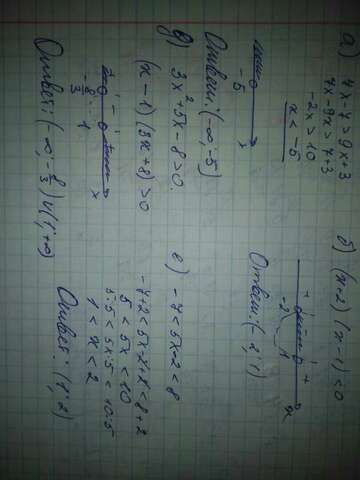 а) 7x-7>9x+3
7x-9x>7+3
-2x>10
x<-5
-5 x
Ответ: (-∞;-5)
б) (x-2)(x-1)<0
+ - +
-2 1 x
Ответ: (-2;1)
в) 3x²+5x-8>0
(x-1)(3x+8)>0
-8/3 1 x
Ответ: (-∞;-8/3)∪(1;+∞)
е) -7<5x-2<8
-7+2<5x-2+2<8+2
5<5x<10
5:5<5x:5<10:5
1<x<2
Ответ: (1;2)